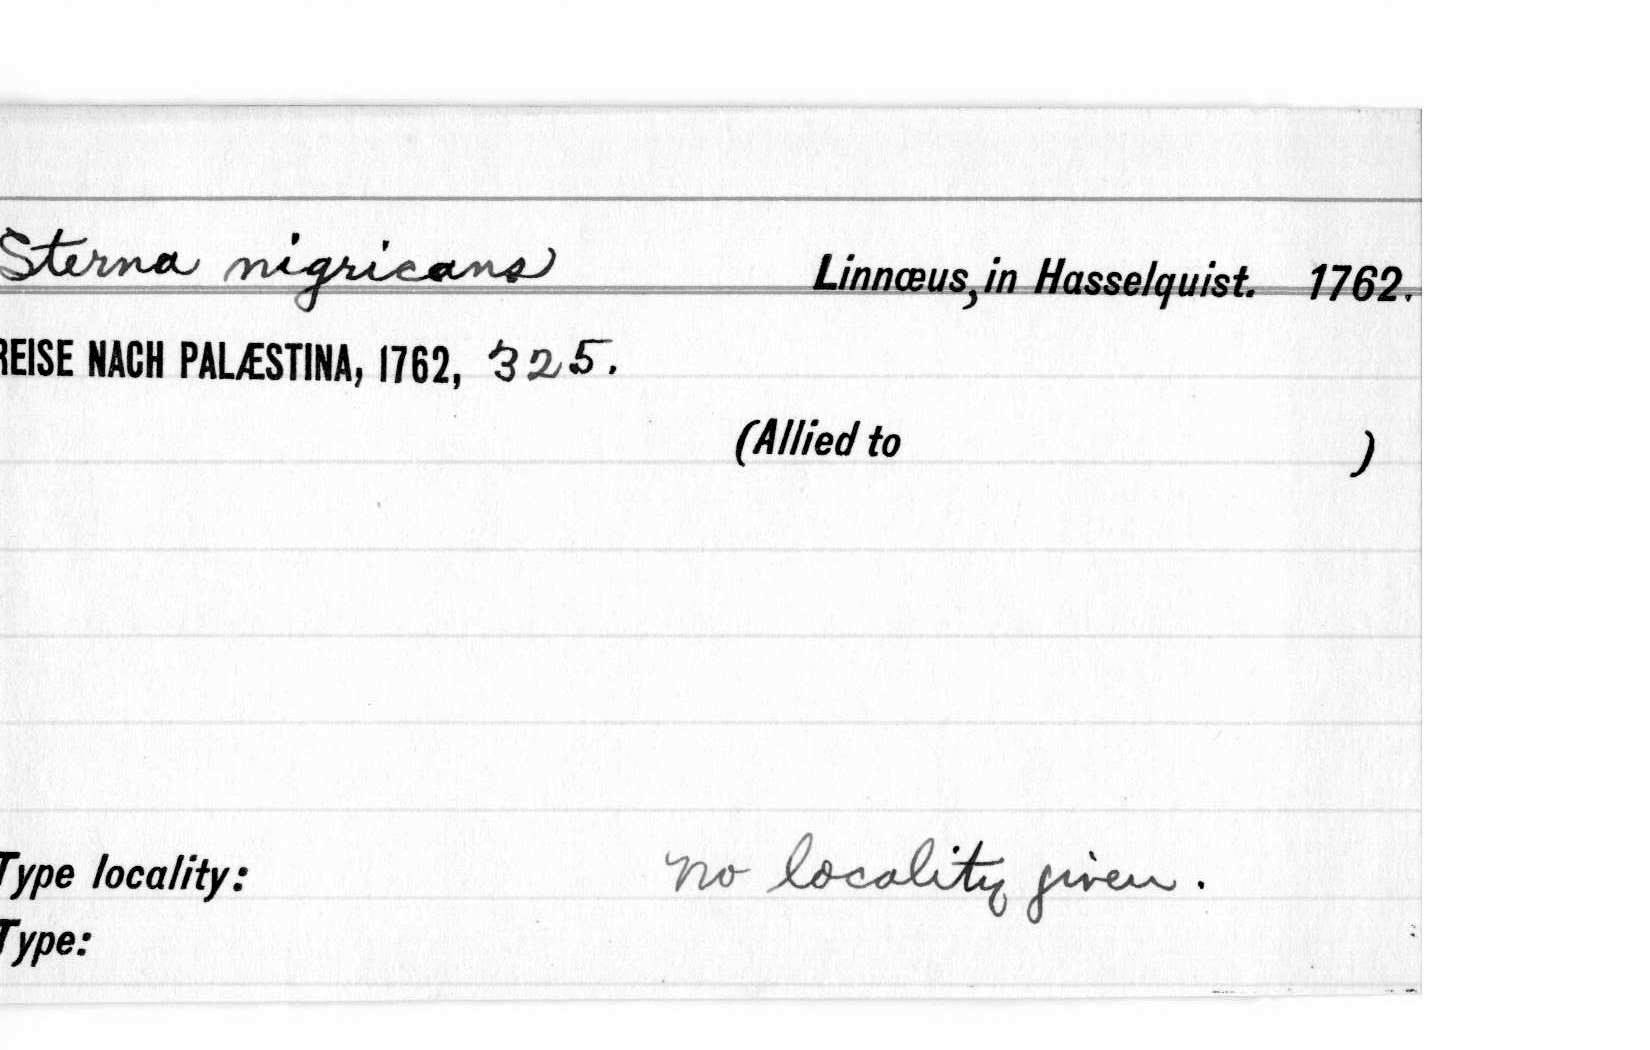 Sterna nigricans Linnœus, in Hasselquist. 1762.
REISE NACH PALÆSTINA, 1762, 325.
(Allied to )
Type locality: no locality given.
Type: